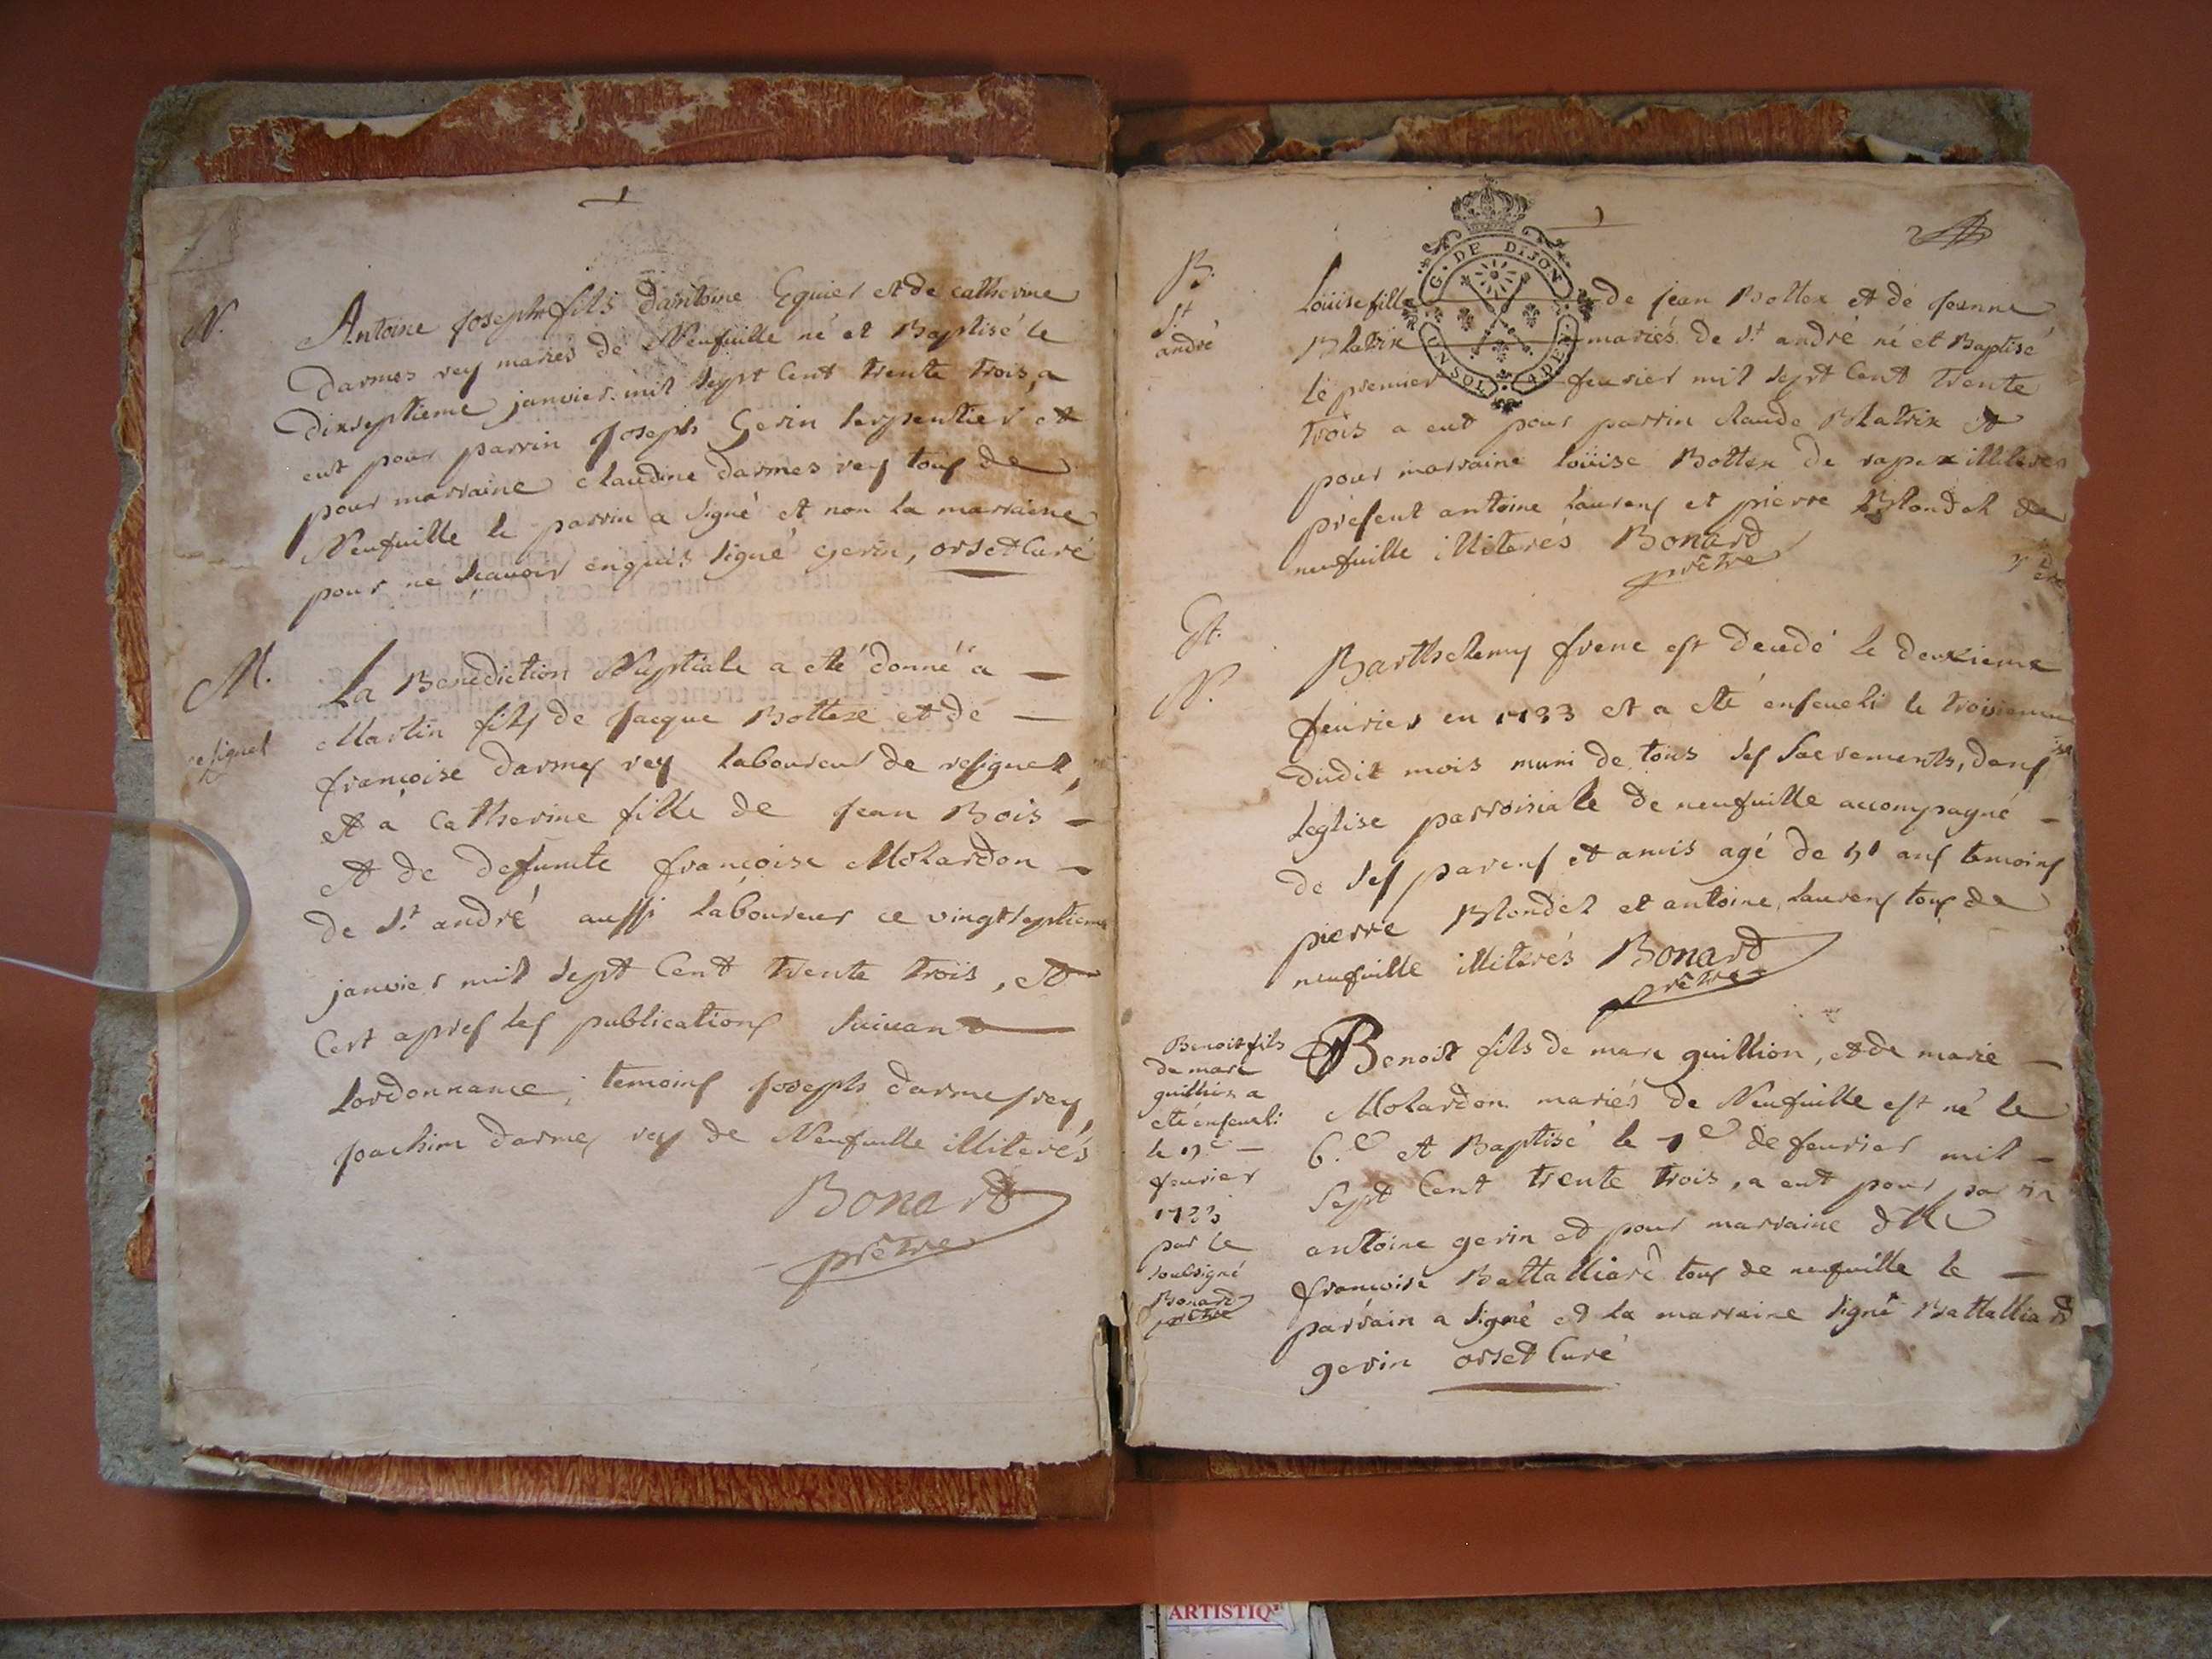 1
N.
Antoine joseph fils dantoine Eguier et de catherine
darmes rey mariés de Neufuille né et Baptisé le
dixseptieme janvier mil sept Cent trente trois, a
eut pour parrin joseph Gerin serpentier et
pour marraine claudine darmes rey tous de
Neufuille le parrin a signé et non la marraine
pour ne sçauoir enquis signé gerin, orset Curé
M.
resignel
La Benediction Nuptiale a eté donné a
Martin fils de jacque Bottex et de
françoise darmes rey laboureur de resignel,
et à Catherine fille de jean Bois
et de defuncte françoise Molardon
de St. andré aussi laboureur ce vingtseptieme
janvier mil sept Cent trente trois, et
Cert apres les publications suiuant
lordonnance, temoins joseph darmes rey,
joachim darmes rey de Neufuille illiterés
Bonard
prêtre
1
G. DE DIJON
UN SOL 4 DEN.
B.
St
andré
Loüise fille de jean Bottex et de jeanne
Blatrix mariés de St andré né et Baptisé
le premier feurier mil sept Cent trente
trois a eut pour parrin claude Blatrix et
pour marraine Loüise Bottex de rapex illiterés
présent antoine laurens et pierre Blondel de
neufuille illiterés Bonard
prêtre
N.
Barthelemy frene est decedé le deuxieme
feurier en 1733 et a eté enseueli le troisieme
dudit mois muni de tous ses sacrements, dans
leglise parroisiale de neufuille accompagné
de ses parens et amis agé de 51 ans temoins
pierre Blondel et antoine laurens tous de
neufuille illiterés Bonard
prêtre
Benoit fils
de marc
guillion a
eté enseueli
le
feurier
1733
par le
soubsigné
Bonard
prêtre
Benoist fils de marc guillion, et de marie
Molardon mariés de Neufuille est né le
6.e et Baptisé le 7e de feurier mil
sept Cent trente trois, a eut pour parrin
antoine gerin et pour marraine dlle
francoise Battalliard tous de neufuille le
parrain a signé et la marraine signé Battalliard
gerin orset Curé
ARTISTIQ